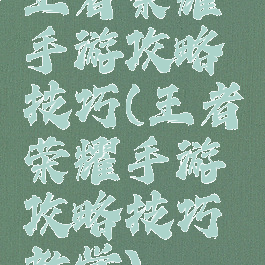 王者荣耀
手游攻略
技巧(王者
荣耀手游
攻略技巧
教学)